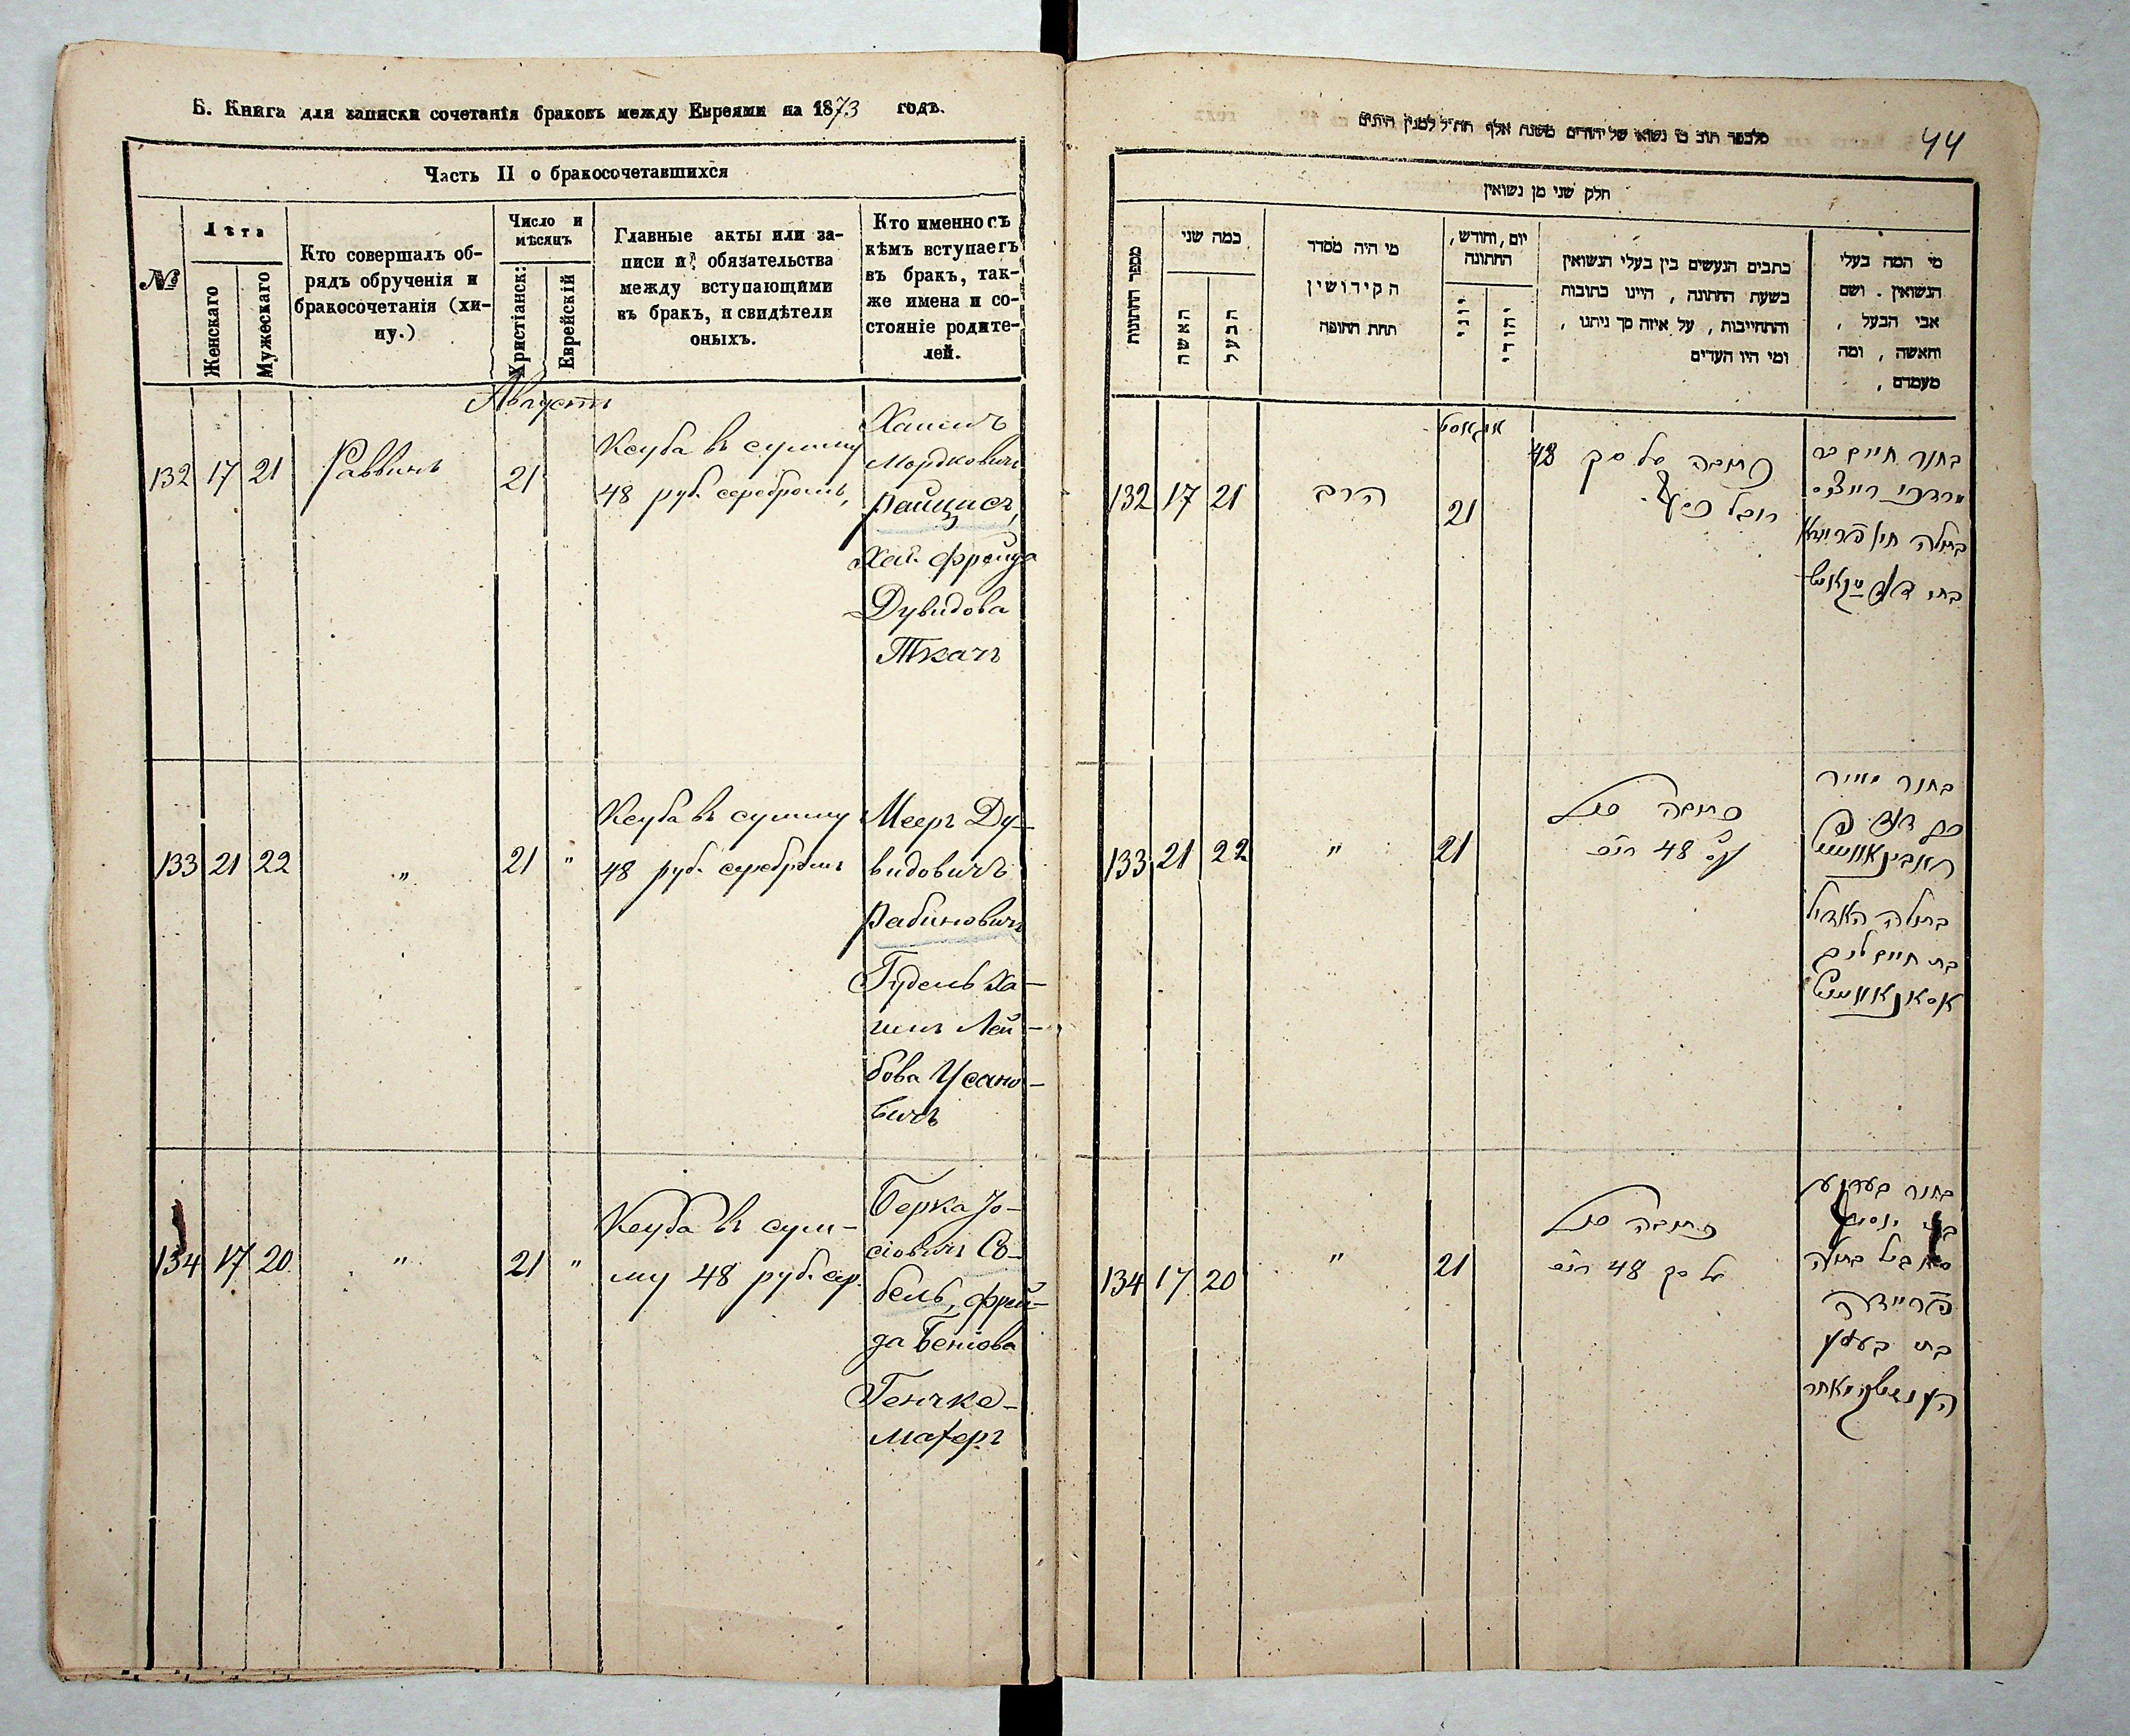 Б. Книга для записки сочетанія браковъ между Евреями на 1873 годъ.
Часть II о бракосочетавшихся
№
Лѣта
Женскаго
Мужескаго
Кто совершалъ об-
рядъ обрученія и
бракосочетанія (хи-
пу.)
Число и
мѣсяцъ
Христіанск:
Еврейскій
Главные акты или за-
писи и обязательства
между вступающими
въ бракъ, и свидѣтели
оныхъ.
Кто именно съ
кѣмъ вступаетъ
въ бракъ, так-
же имена и со-
стояніе родите-
лей.
Августъ
132 17 21 Раввинъ 21
Ксуба въ сумму
48 руб. серебромъ,
Хаимъ
Мордковичъ
Райцисъ,
Хая Фрейда
Дувидова
Ткачъ
133 21 22 " 21 "
Ксуба въ сумму
48 руб. серебромъ
Мееръ Ду-
видовичъ
Рабиновичъ
Гудель Ха-
имъ Лей-
бова Усано-
вичъ
134 17 20 " 21 "
Ксуба въ сум-
му 48 руб. сер.
Берка Іо-
сіовичъ Со-
бель, Фрей-
да Беніова
Генчке-
махеръ
44
חלק שני מן נשואין
מספר החתונות
כמה שני
האשה
הבעל
מי היה מסדר
הקידושין
תחת החופה
יום, וחודש,
החתונה
יוני
יהודי
כתבים הנעשים בין בעלי הנשואין
בשעת החתונה, היינו כתובות
והתחייבות, על איזה סך ניתנו,
ומי היו העדים
מי המה בעלי
הנשואין. ושם
אבי הבעל,
והאשה, ומה
מעמדם,
אויגאסט
132 17 21 הרב 21
כתובה על סך 48
רובל כסף
בחור חיים בר
מרדכי רייצעס
בתולה חי' פריידא
בת דוד
133 21 22 " 21
כתובה
48
בחור מאיר
דוד
ראבינאוויטש
בתולה האדיל
בת חיים ליב
אוסאנאוויטש
134 17 20 " 21
כתובה
על סך 48
בחור בערקע
סאביל בתולה
פריידה
בת